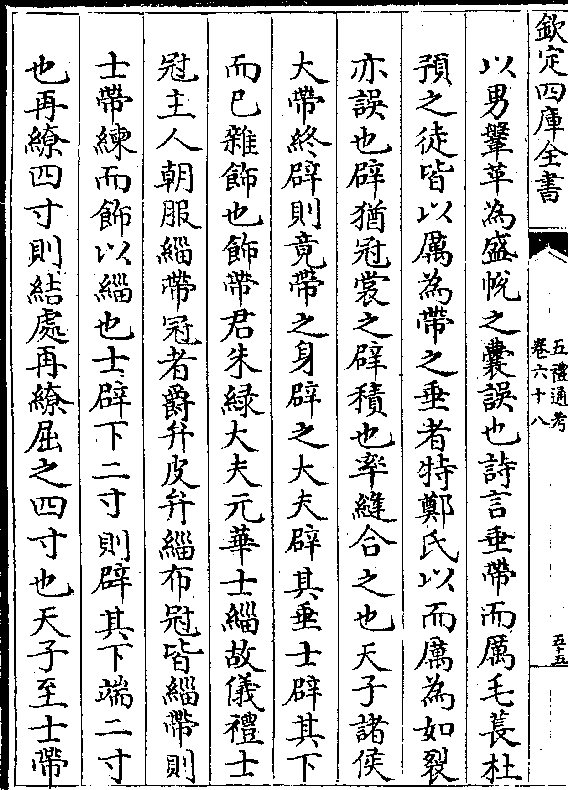 欽定四庫全書
五禮通考
卷六十八
五十五
以男鞶革為盛帨之囊誤也詩言垂帶而厲毛萇杜
預之徒皆以厲為帶之垂者特鄭氏以而厲為如裂
亦誤也辟猶冠裳之辟積也率縫合之也天子諸侯
大帶終辟則竟帶之身辟之大夫辟其垂士辟其下
而已雜飾也飾帶君朱綠大夫元華士緇故儀禮士
冠主人朝服緇帶冠者爵弁皮弁緇布冠皆緇帶則
士帶練而飾以緇也士辟下二寸則辟其下端二寸
也再繚四寸則結處再繚屈之四寸也天子至士帶